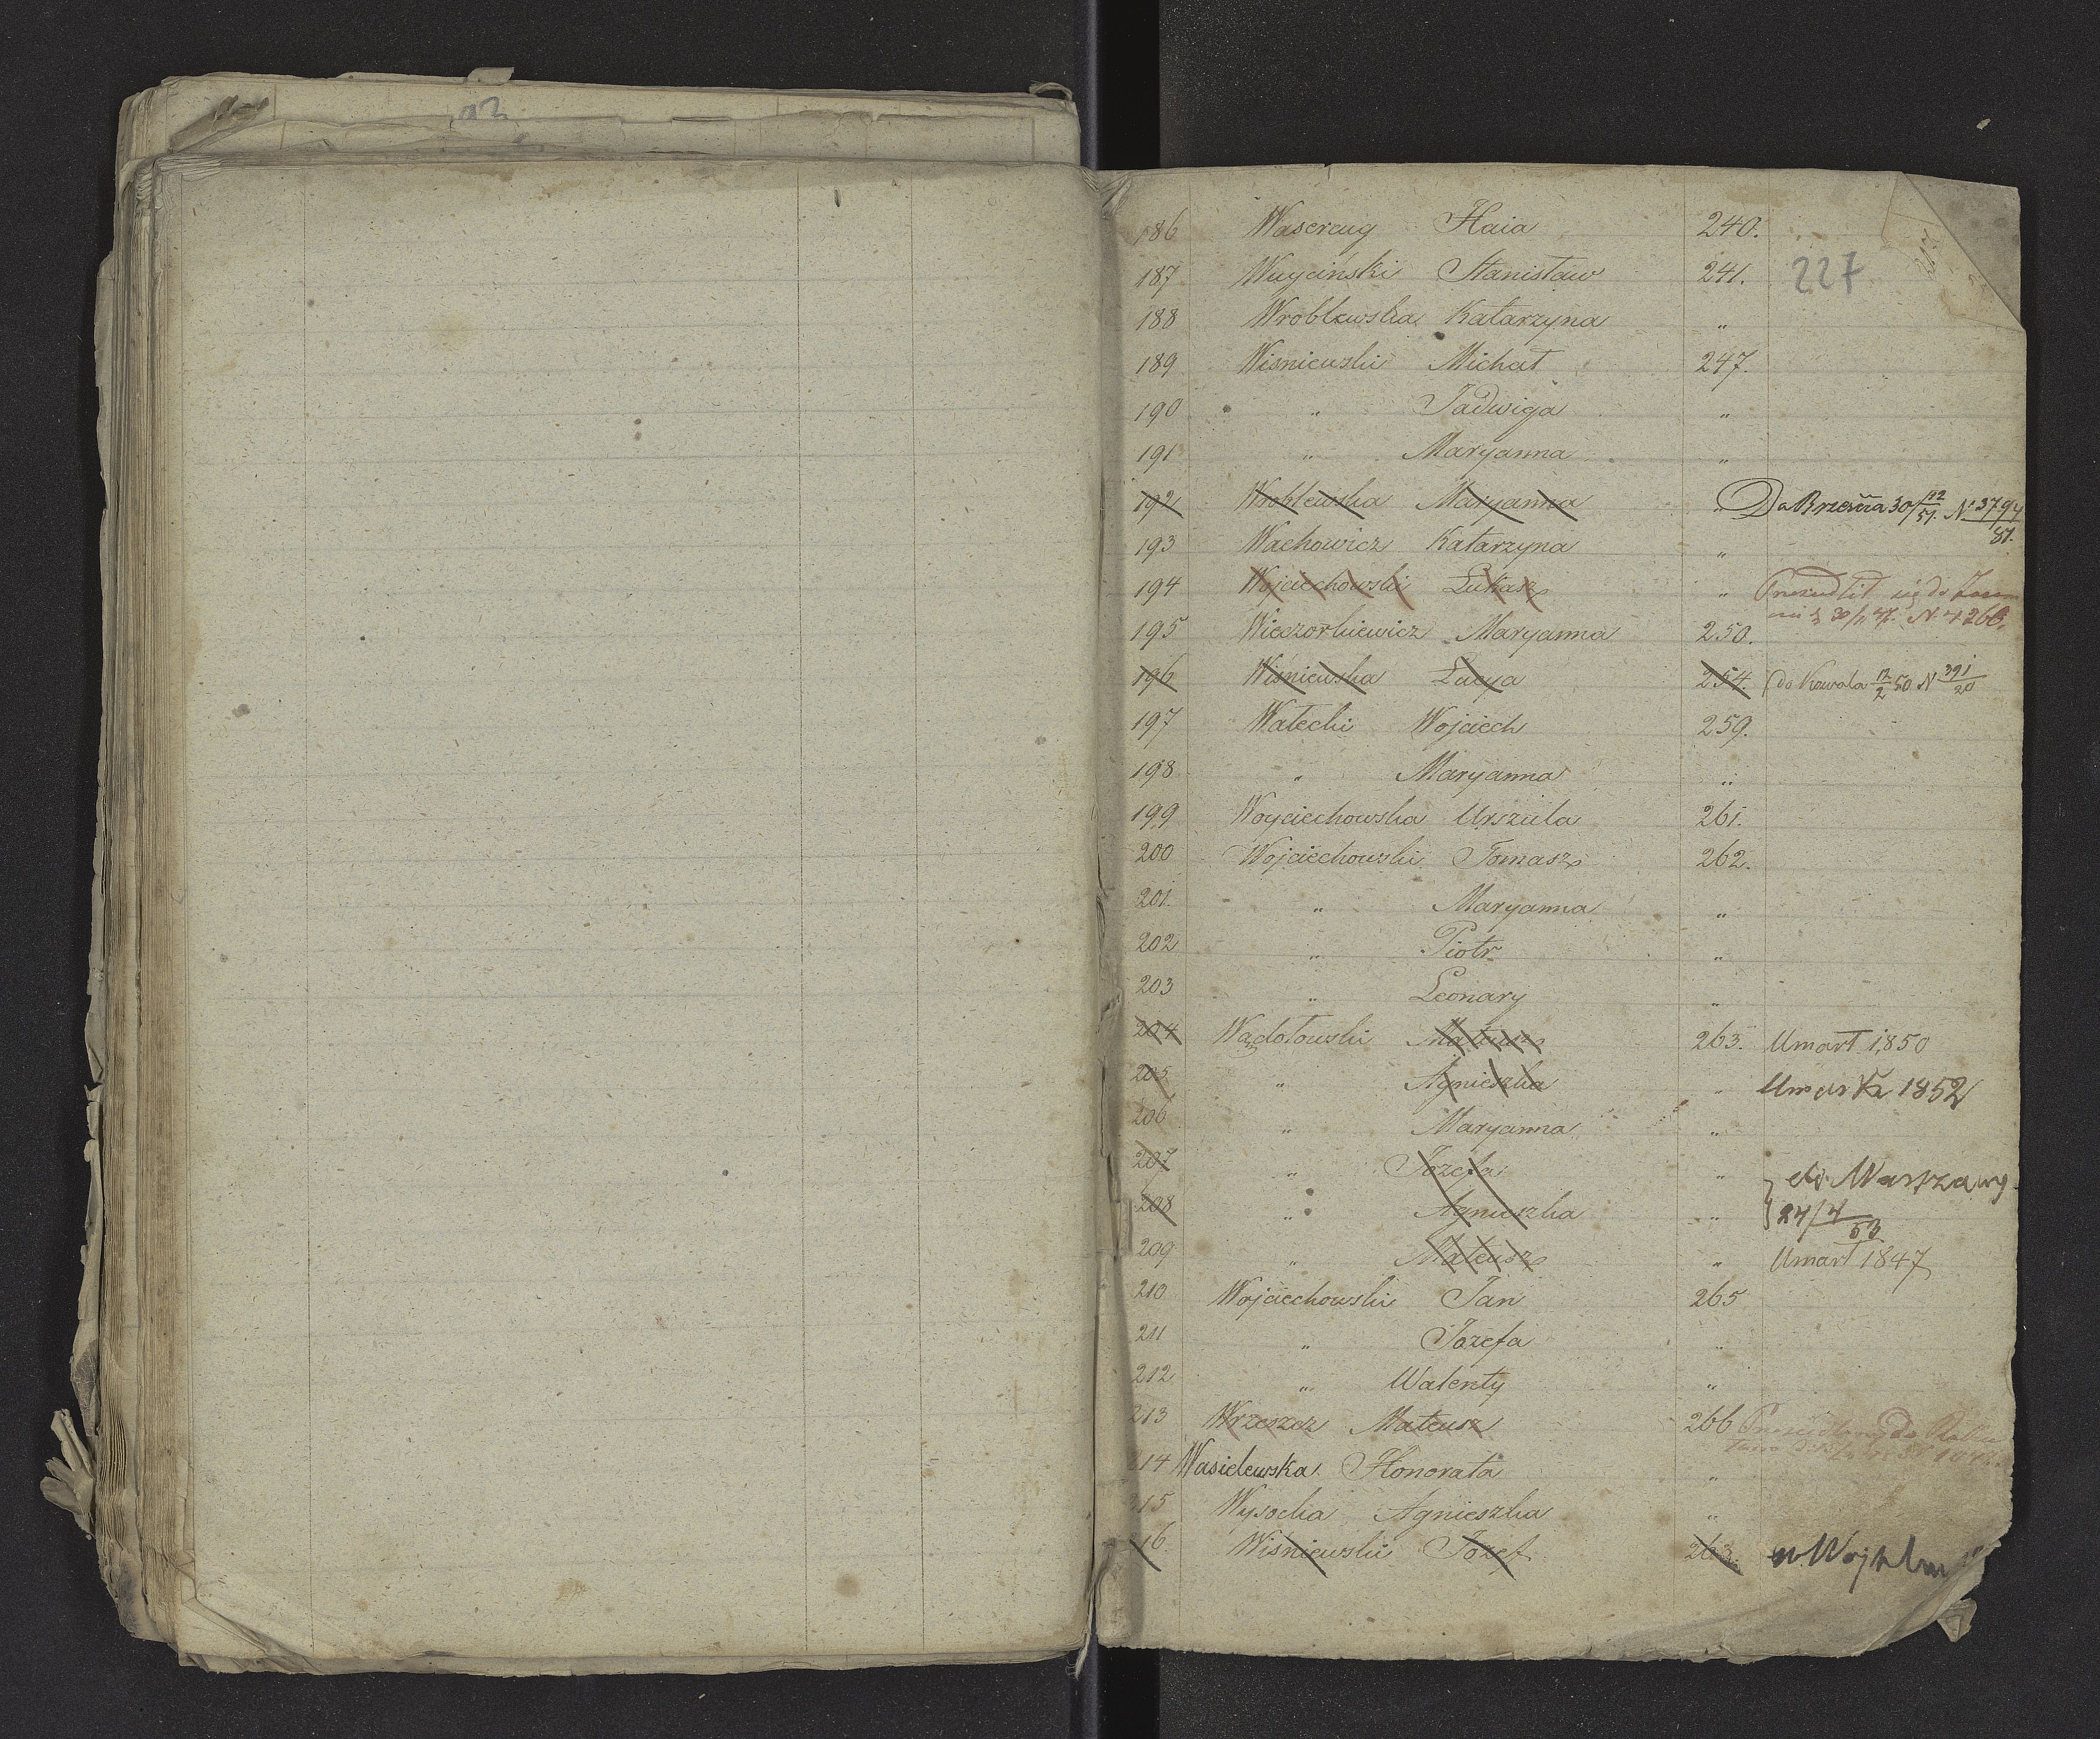 93
186 Wasercug Haia 240.
187 Wuyciński Stanisław 241. 227
188 Wroblewska Katarzyna „
189 Wisniewski Michał 247.
190 „ Jadwiga „
191 „ Maryanna „
192 Wroblewska Maryanna „ Do Brzescia 30/12 51. N 3794
51.
193 Wachowicz Katarzyna „
194 Wojciechowski Łukasz „ się do
N 4266.
195 Wieczorkiewicz Maryanna 250.
196 Wiśniewska Łucya 254. do Kowala 12/2 50 N 391/20
197 Wałecki Wojciech 259.
198 „ Maryanna „
199 Woyciechowska Urszula 261.
200 Wojciechowski Tomasz 262.
201. „ Maryanna „
202 „ Piotr „
203 „ Leonary „
204 Wądołowski Mateusz 263. Umarł 1850
205 „ Agnieszka „ Umarła 1852
206 „ Maryanna „
207 „ Jozefa „ } do Warszawy
208 „ Agnieszka „ 24/4 53
209 „ Mateusz „ Umarł 1847
210 Wojciechowski Jan 265
211 „ Jozefa „
212 „ Walenty „
213 Wrzeszcz Mateusz 266 do
214 Wasielewska Honorata „
215 Wysocka Agnieszka „
216. Wiśniewski Jozef 263. w